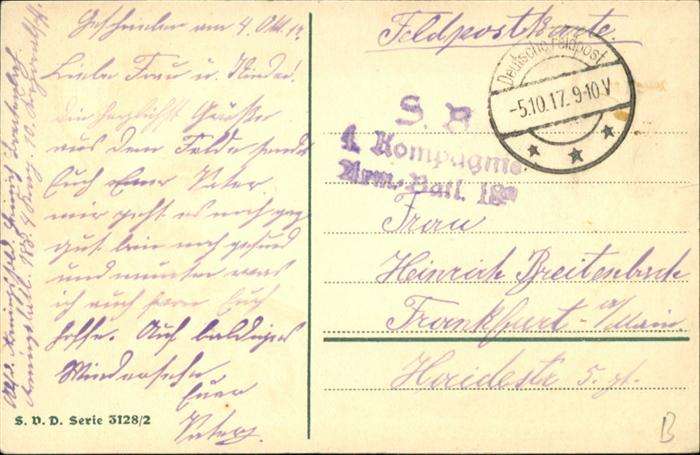 Geschrieben am 4. Okt. 17
Liebe Frau u. Kinder!
Die herzlichst Grüße
aus dem Felde sendet
Euch Euer Vater
mir geht es noch ganz
gut bin noch gesund
und munter was
ich auch von Euch
hoffe. Auf baldiges
Wiedersehn
Euer
Vater
S. V. D. Serie 3128/2
Feldpostkarte
Deutsche Feldpost
-5.10.17. 9-10 V
S. B
4. Kompagnie
Arm.-Batl.
Frau
Heinrich Breitenbach
Frankfurt a/Main
Haidestr 5.
B